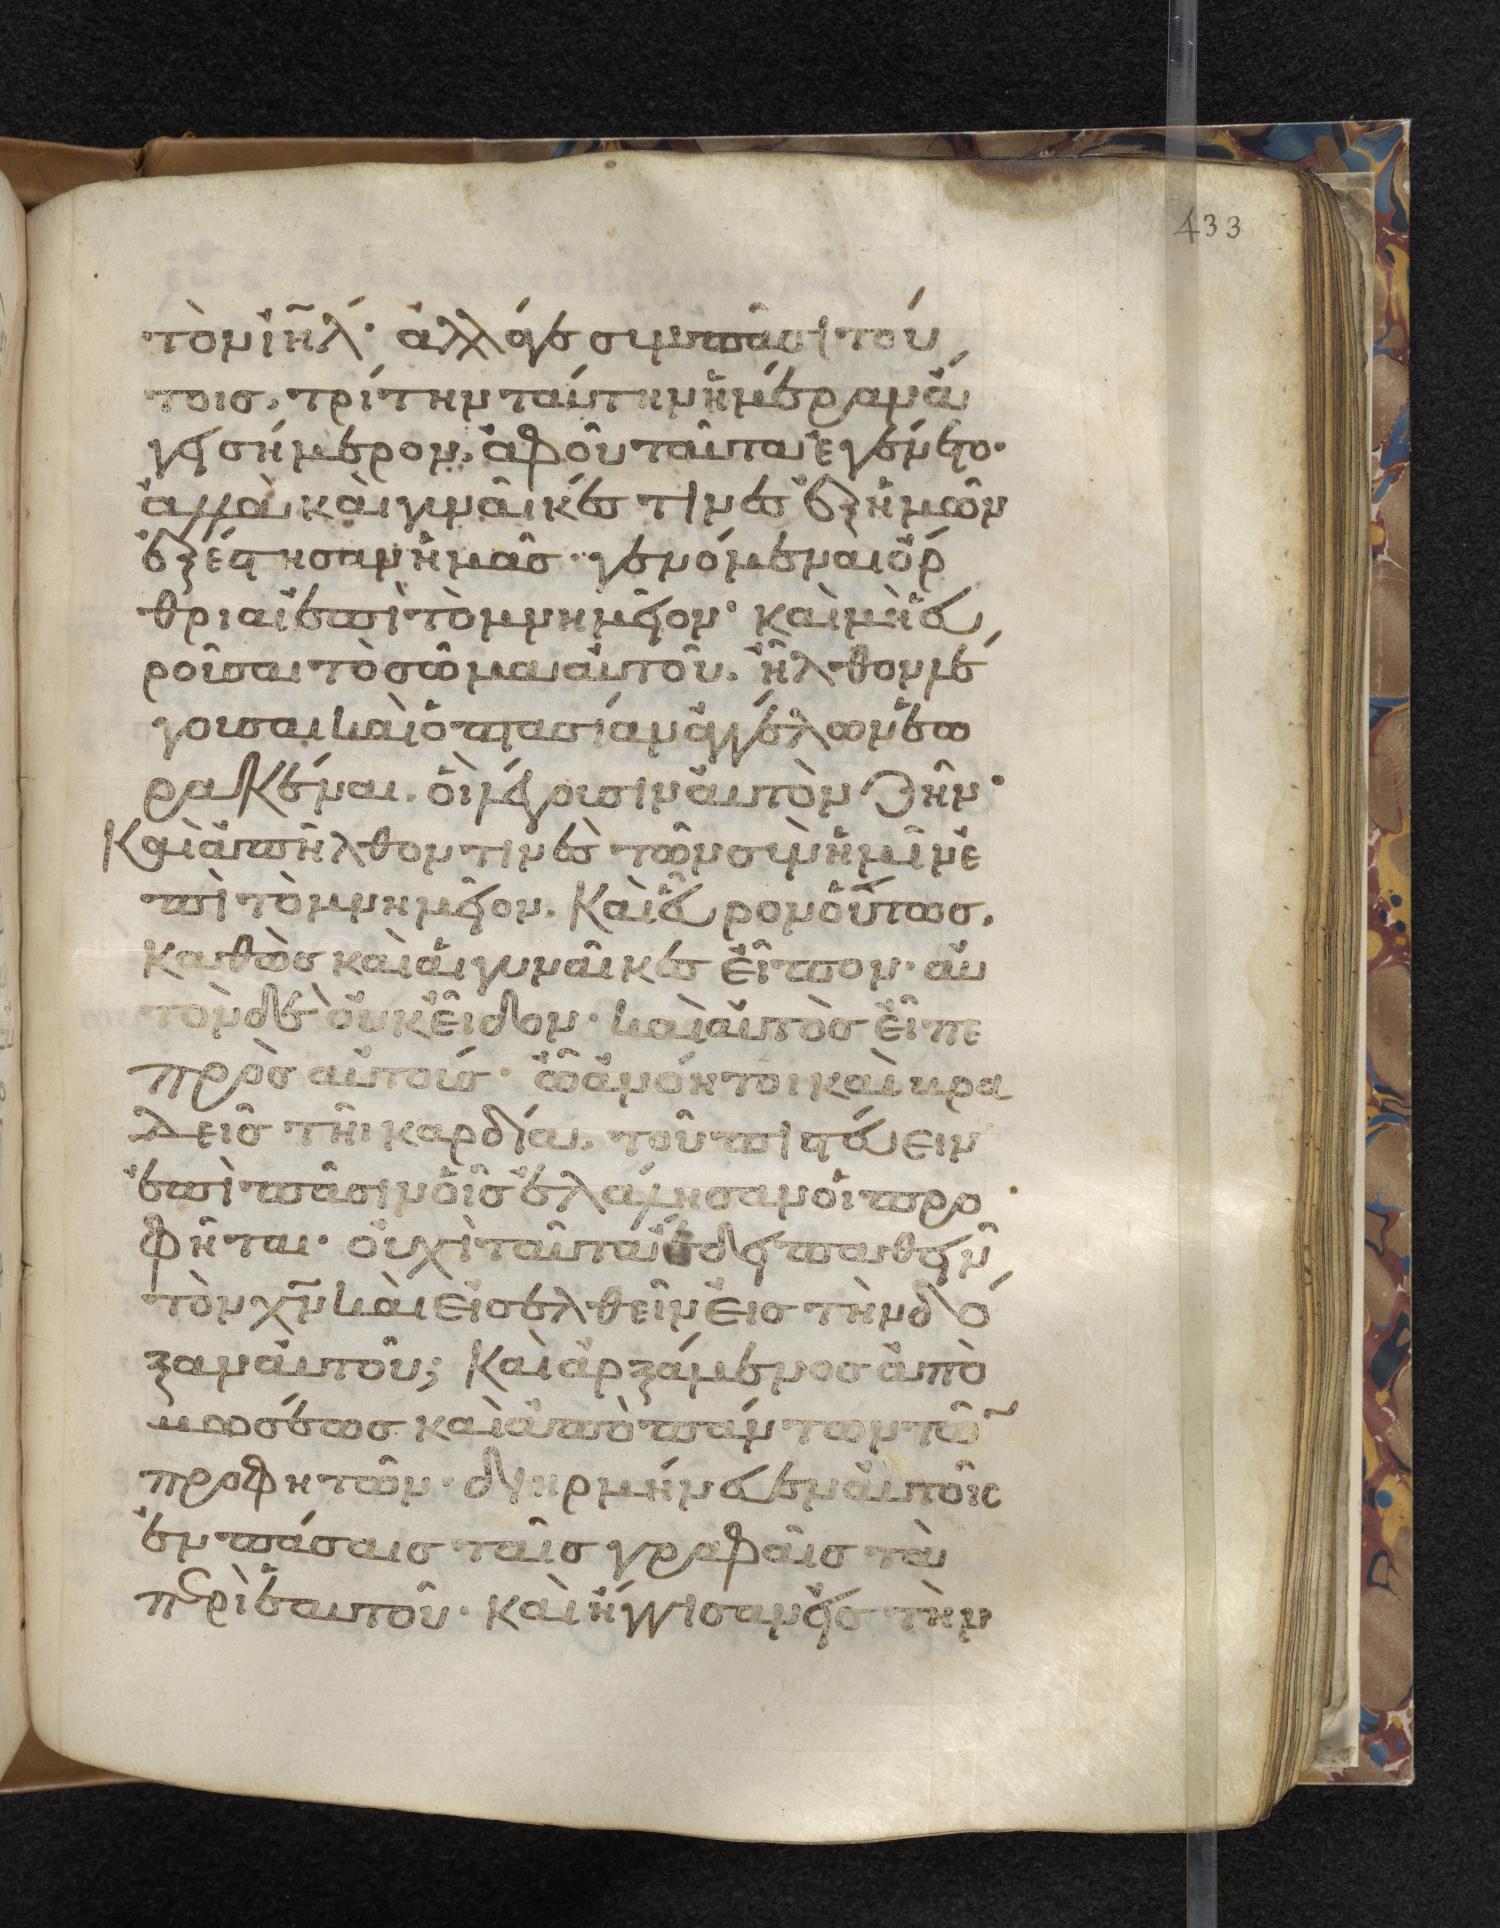 433
τὸν ἰη̃λ· ἀλλά γε σὺν πᾶσι τού
τοις, τρίτην ταύτην ἡμέραν ἄ
γει σήμερον, ἀφ οὗ ταῦτα ἐγένετο·
ἀλλὰ καὶ γυναῖκές τινες ἐξ ἡμῶν
ἐξέστησαν ἡμᾶς· γενόμεναι ὄρ
θριαι ἐπὶ τὸ μνημεῖον· καὶ μὴ εὑ
ροῦσαι τὸ σῶμα αὐτοῦ, ἦλθον λέ
γουσαι καὶ ὀπτασίαν ἀγγέλων ἑω
ρακέναι, οἳ λέγουσιν αὐτὸν ζῆν·
Καὶ ἀπῆλθόν τινες τῶν σὺν ἡμῖν ἐ
πὶ τὸ μνημεῖον, καὶ εὗρον οὕτως,
καθὼς καὶ αἱ γυναῖκες εἶπον· αὐ
τὸν δὲ οὐκ εἶδον· καὶ αὐτὸς εἶπε
πρὸς αὐτούς· ὦ ἀνόητοι καὶ βρα
δεῖς τῆι καρδία, τοῦ πιστεύειν
ἐπὶ πᾶσιν οἷς ἐλάλησαν οἱ προ
φῆται· οὐχὶ ταῦτα ἔδει παθεῖν
τὸν χν̃ καὶ εἰσελθεῖν εἰς τὴν δό
ξαν αὐτοῦ; Καὶ ἀρξάμενος ἀπὸ
μωσέως καὶ ἀπὸ πάντων τῶ
προφητῶν· διηρμήνευεν αὐτοῖς
ἐν πάσαις ταῖς γραφαῖς τὰ
περὶ ἑαυτοῦ· καὶ ἤγγισαν εἰς τὴν